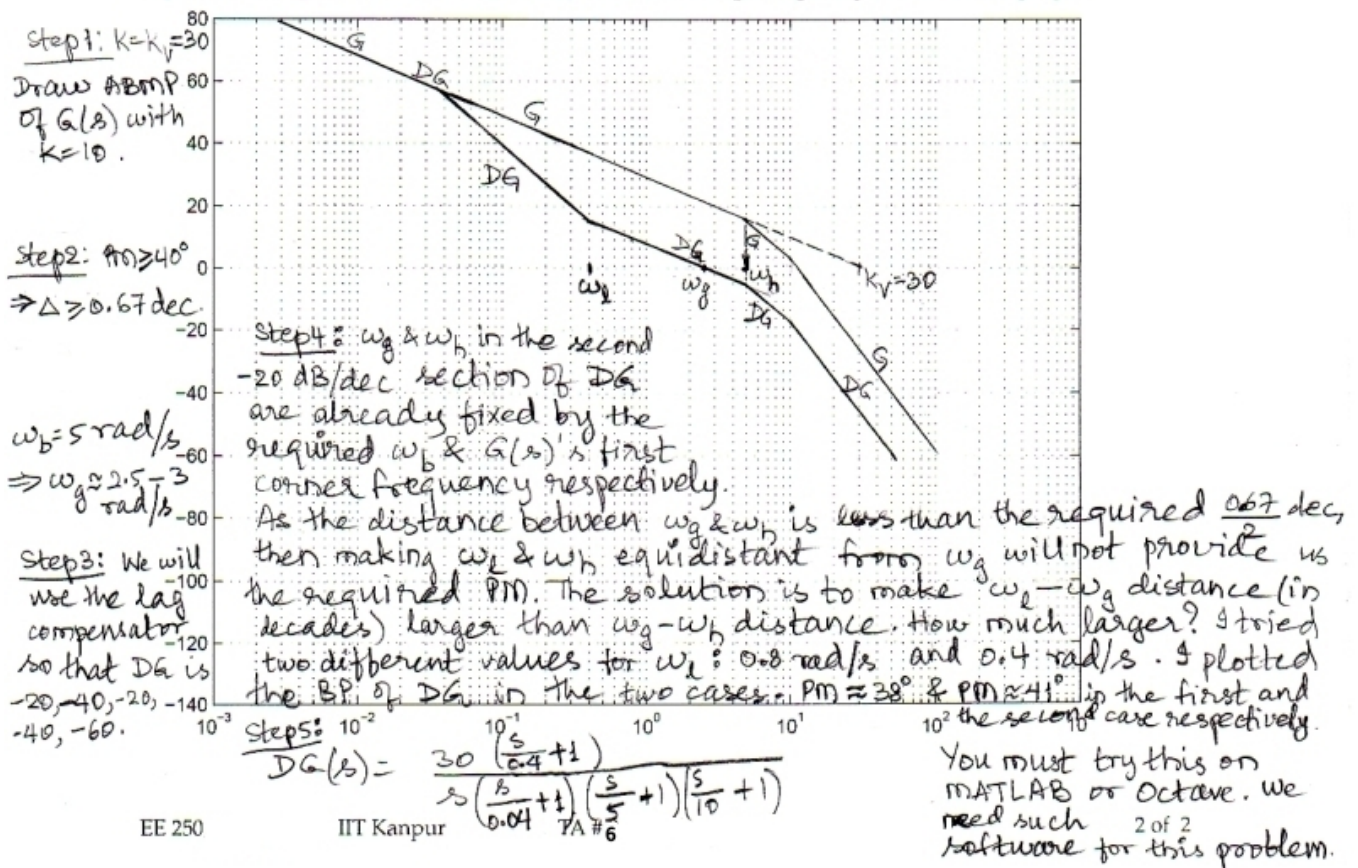 Step1: K=Kᵥ=30
Draw ABMP
of G(s) with
K=10.
Step2: PM≥40°
⇒ Δ ≥ 0.67 dec.
ω_b = 5 rad/s
⇒ ω_g ≈ 2.5 – 3
rad/s
Step3: We will
use the lag
compensator
so that DG is
-20, -40, -20,
-40, -60.
80
60
40
20
0
-20
-40
-60
-80
-100
-120
-140
G
DG
G
DG
DG
G
ω_l
ω_g
ω_h
Kᵥ=30
DG
G
DG
Step4: ω_g & ω_h in the second
-20 dB/dec section of DG
are already fixed by the
required ω_b & G(s)'s first
corner frequency respectively.
As the distance between ω_g & ω_h is less than the required 0.67/2 dec,
then making ω_l & ω_h equidistant from ω_g will not provide us
the required PM. The solution is to make ω_l – ω_g distance (in
decades) larger than ω_g – ω_h distance. How much larger? I tried
two different values for ω_l : 0.8 rad/s and 0.4 rad/s. I plotted
the BP of DG in the two cases. PM ≈ 38° & PM ≈ 41° in the first and
the second case respectively.
10⁻³ 10⁻² 10⁻¹ 10⁰ 10¹ 10² 10³
You must try this on
MATLAB or Octave. We
need such
software for this problem.
Step5:
DG(s) = 30 (s/0.4 + 1) / s (s/0.04 + 1) (s/5 + 1) (s/10 + 1)
EE 250 IIT Kanpur TA #6 2 of 2